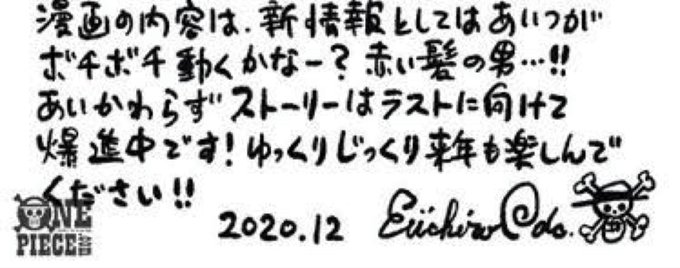 漫画の内容は、新情報としてはあいつが
ボチボチ動くかなー?赤い髪の男…!!
あいかわらずストーリーはラストに向けて
爆進中です!ゆっくりじっくり来年も楽しんで
ください!!
2020.12 Eiichiro Oda.
ONE
PIECE